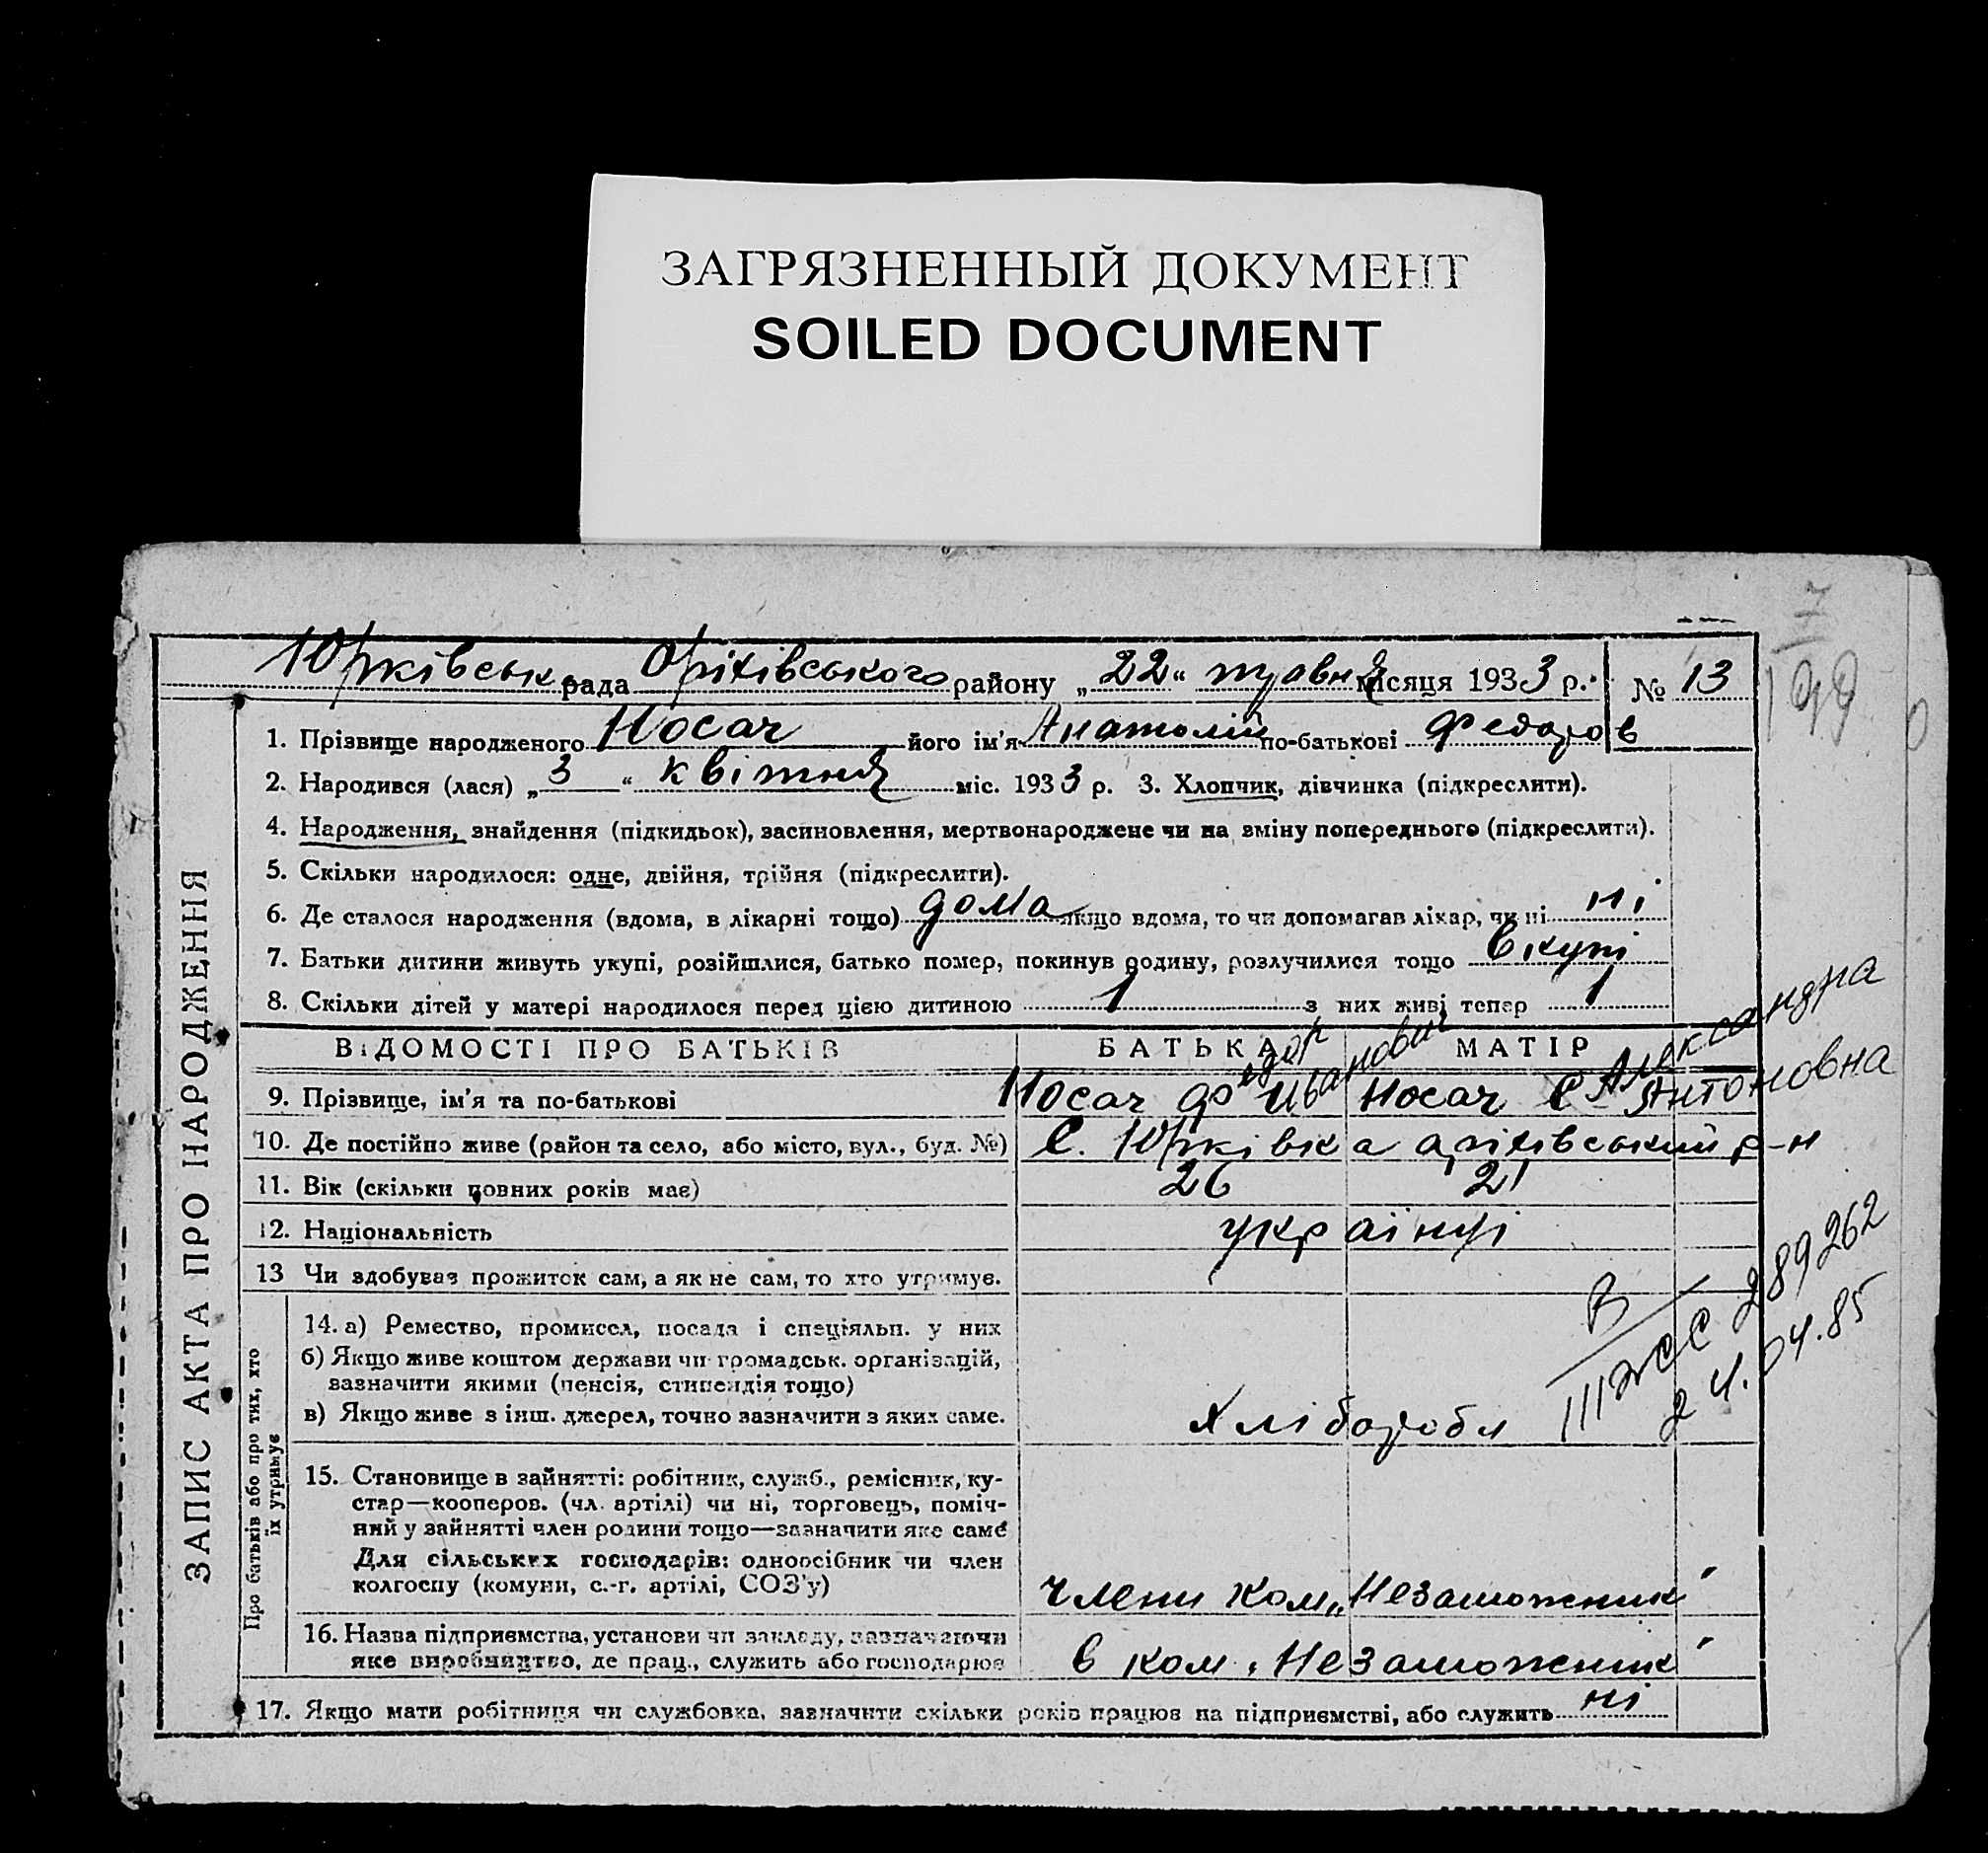 ЗАГРЯЗНЕННЫЙ ДОКУМЕНТ
SOILED DOCUMENT
7
199
Юрківськ рада Оріхівського району „22“ травня місяця 1933 р. № 13
1. Прізвище народженого Носач його ім'я Анатолій по-батькові Федоров
2. Народився (лася) „3“ квітня міс. 1933 р. 3. Хлопчик, дівчинка (підкреслити).
4. Народження, знайдення (підкидьок), засиновлення, мертвонароджене чи на зміну попереднього (підкреслити).
5. Скільки народилося: одне, двійня, трійня (підкреслити).
6. Де сталося народження (вдома, в лікарні тощо) дома якщо вдома, то чи допомагав лікар, чи ні ні
7. Батьки дитини живуть укупі, розійшлися, батько помер, покинув родину, розлучилися тощо вкупі
8. Скільки дітей у матері народилося перед цією дитиною 1 з них живі тепер 1
ЗАПИС АКТА ПРО НАРОДЖЕННЯ
ВІДОМОСТІ ПРО БАТЬКІВ БАТЬКА МАТІР
9. Прізвище, ім'я та по-батькові Носач Федор Иванович Носач Александра Антоновна
10. Де постійно живе (район та село, або місто, вул., буд. №) С. Юрківка оріхівський р-н
11. Вік (скільки повних років має) 26 21
12. Національність українці
13 Чи здобував прожиток сам, а як не сам, то хто утримує.
Про батьків або про тих, хто
їх утримує
14. а) Ремество, промисел, посада і спеціяльн. у них
б) Якщо живе коштом держави чи громадськ. організацій,
зазначити якими (пенсія, стипендія тощо)
в) Якщо живе з інш. джерел, точно зазначити з яких саме.
хлібороби
В
III ЖС 289262
24.04.85
15. Становище в зайнятті: робітник, служб., ремісник, ку-
стар—кооперов. (чл. артілі) чи ні, торговець, поміч-
ний у зайнятті член родини тощо—зазначити яке саме
Для сільських господарів: одноосібник чи член
колгоспу (комуни, с.-г. артілі, СОЗ'у)
члени ком „Незаможник"
16. Назва підприємства, установи чи закладу, зазначаючи
яке виробництво, де прац., служить або господарює
в ком. „Незаможник"
17. Якщо мати робітниця чи службовка, зазначити скільки років працює на підприємстві, або служить ні